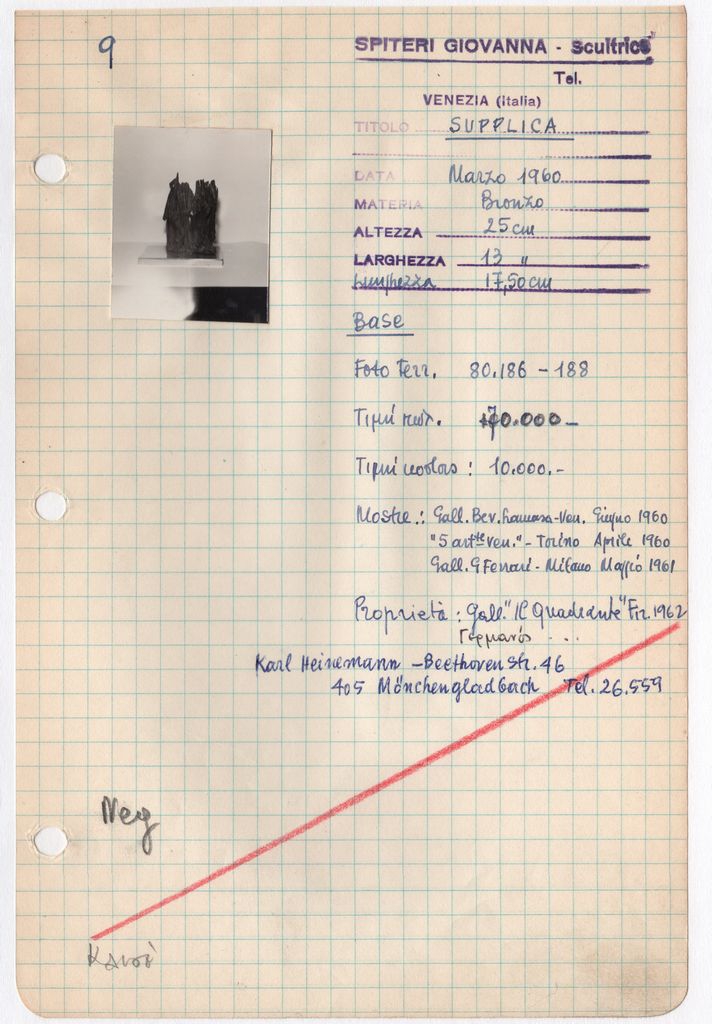 9
SPITERI GIOVANNA - Scultrice
Tel.
VENEZIA (Italia)
TITOLO SUPPLICA
DATA Marzo 1960
MATERIA Bronzo
ALTEZZA 25 cm
LARGHEZZA 13 "
Lunghezza 17,50 cm
Base
Foto Ferr. 80.186 - 188
Τιμή πωλ. 70.000_
Τιμή κόστους : 10.000.-
Mostre : Gall. Bev. -Ven. Giugno 1960
"5 artte ven." - Torino Aprile 1960
Gall. G Ferrari - Milano Maggio 1961
Proprietà : Gall. "Il Quadrante" Fir. 1962
Γερμανός ...
Karl Heinemann - Beethoven Str. 46
405 Mönchengladbach Tel. 26.559
Neg